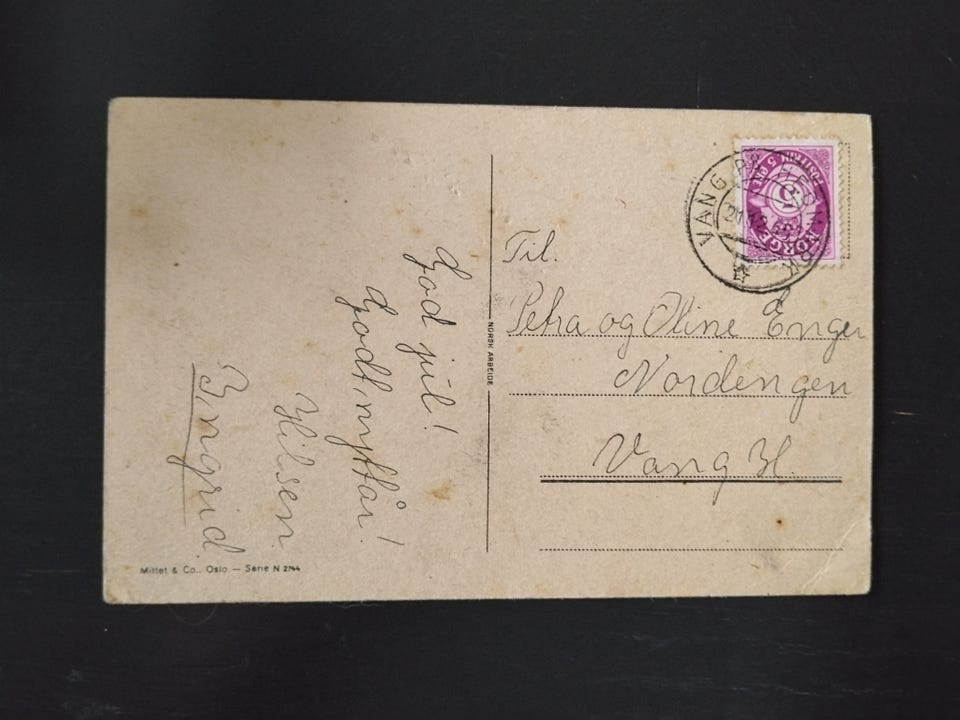 God jul!
Godt nyttår!
Hilsen
Ingrid.
Mittet & Co., Oslo — Serie N 2744
NORSK ARBEIDE
Til.
Petra og Oline Enger
Nordengen
Vang H.
VANG
NORGE
5 ØRE